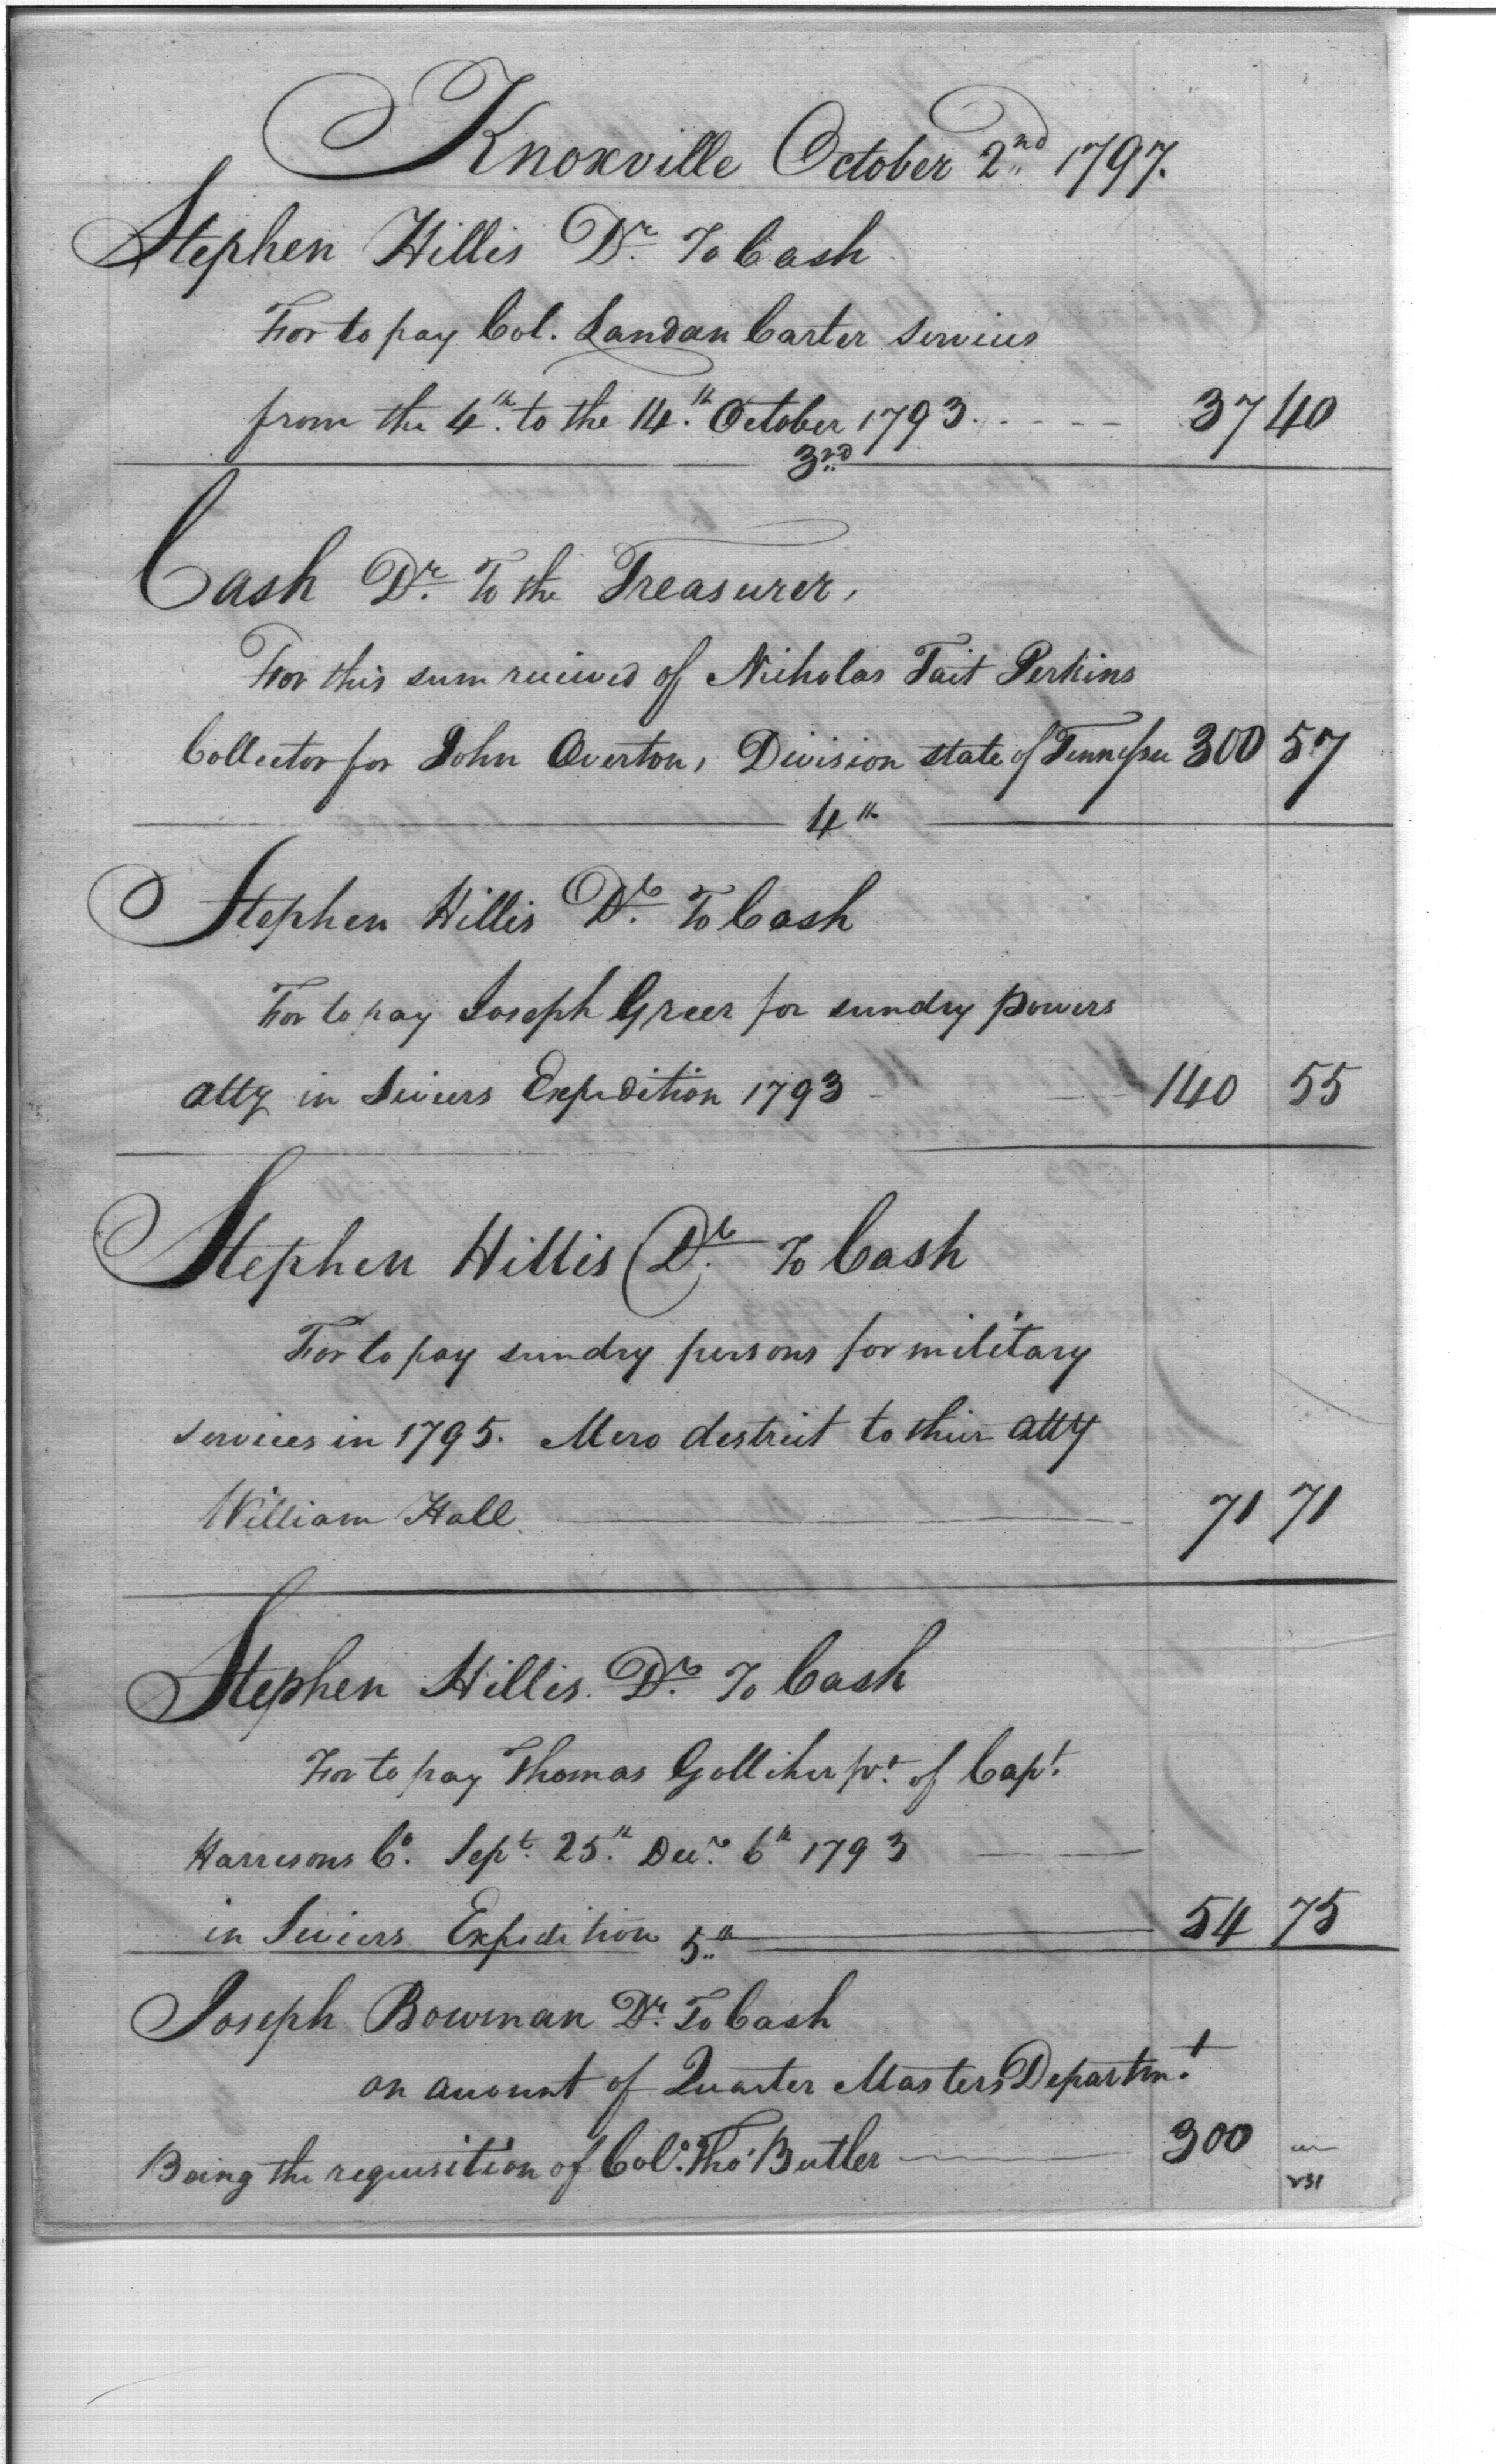 Knoxville October 2nd 1797.
Stephen Hillis Dr. To Cash
For to pay Col. Landan Carter services
from the 4th. to the 14th. October 1793. - - - - 37 40
3rd
Cash Dr. To the Treasurer,
For this sum recieved of Nicholas Tait Perkins
Collector for John Overton, Division state of Tennessee 300 57
4th
Stephen Hillis Dr. To Cash
For to pay Joseph Greer for sundry powers
atty in Seviers Expedition 1793 - 140 55
Stephen Hillis Dr. To Cash
For to pay sundry persons for military
services in 1795. Mero destrict to their atty
William Hall. 71 71
Stephen Hillis Dr. To Cash
For to pay Thomas Golliher pvt. of Capt.
Harrisons Co. Sept. 25th. Decr. 6th 1793
in Seviers Expedition 54 75
5th
Joseph Bowman Dr. To Cash
on account of Quarter Masters Departmt.
Being the requisition of Colo. Tho' Butler 300 —
231